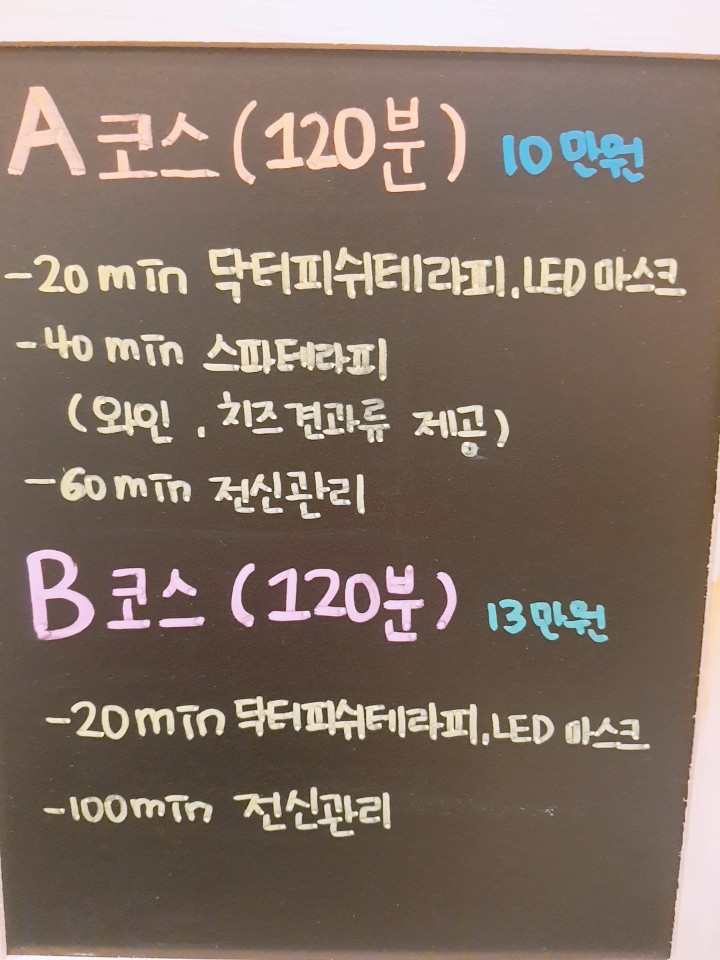 A 코스 (120분) 10만원
-20min 닥터피쉬테라피, LED 마스크
-40min 스파테라피
(와인, 치즈견과류 제공)
-60min 전신관리
B 코스 (120분) 13만원
-20min 닥터피쉬테라피, LED 마스크
-100min 전신관리